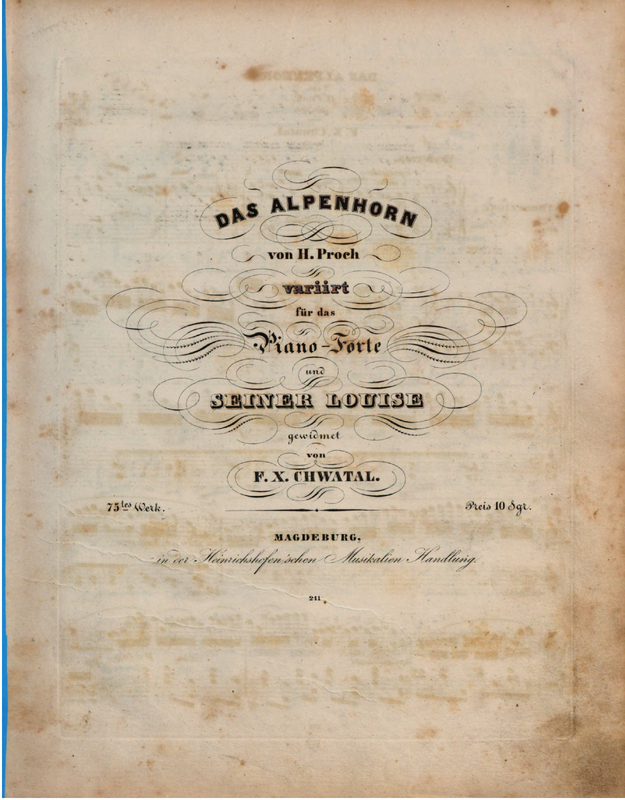 DAS ALPENHORN
von H. Proch
variirt
für das
Piano-Forte
und
SEINER LOUISE
gewidmet
von
F. X. CHWATAL.
75tes Werk.
Preis 10 Sgr.
MAGDEBURG,
in der Heinrichshofen'schen Musikalien Handlung.
241.